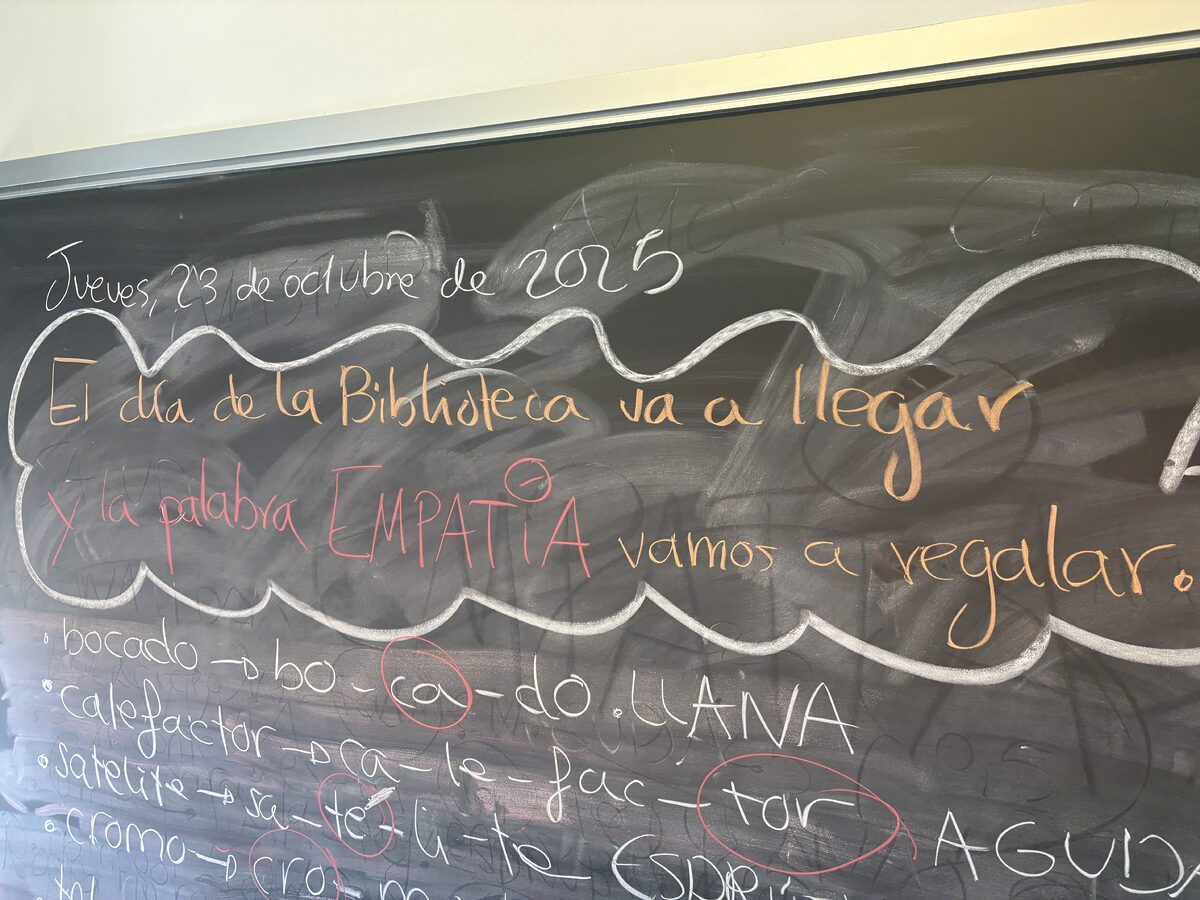 Jueves, 23 de octubre de 2025
El día de la Biblioteca va a llegar
y la palabra EMPATÍA vamos a regalar.
• bocado → bo - ca - do . LLANA
• calefactor → ca - le - fac - tor AGUDA
• satelite → sa - té - li - te ESDRÚ
• cromo → cro